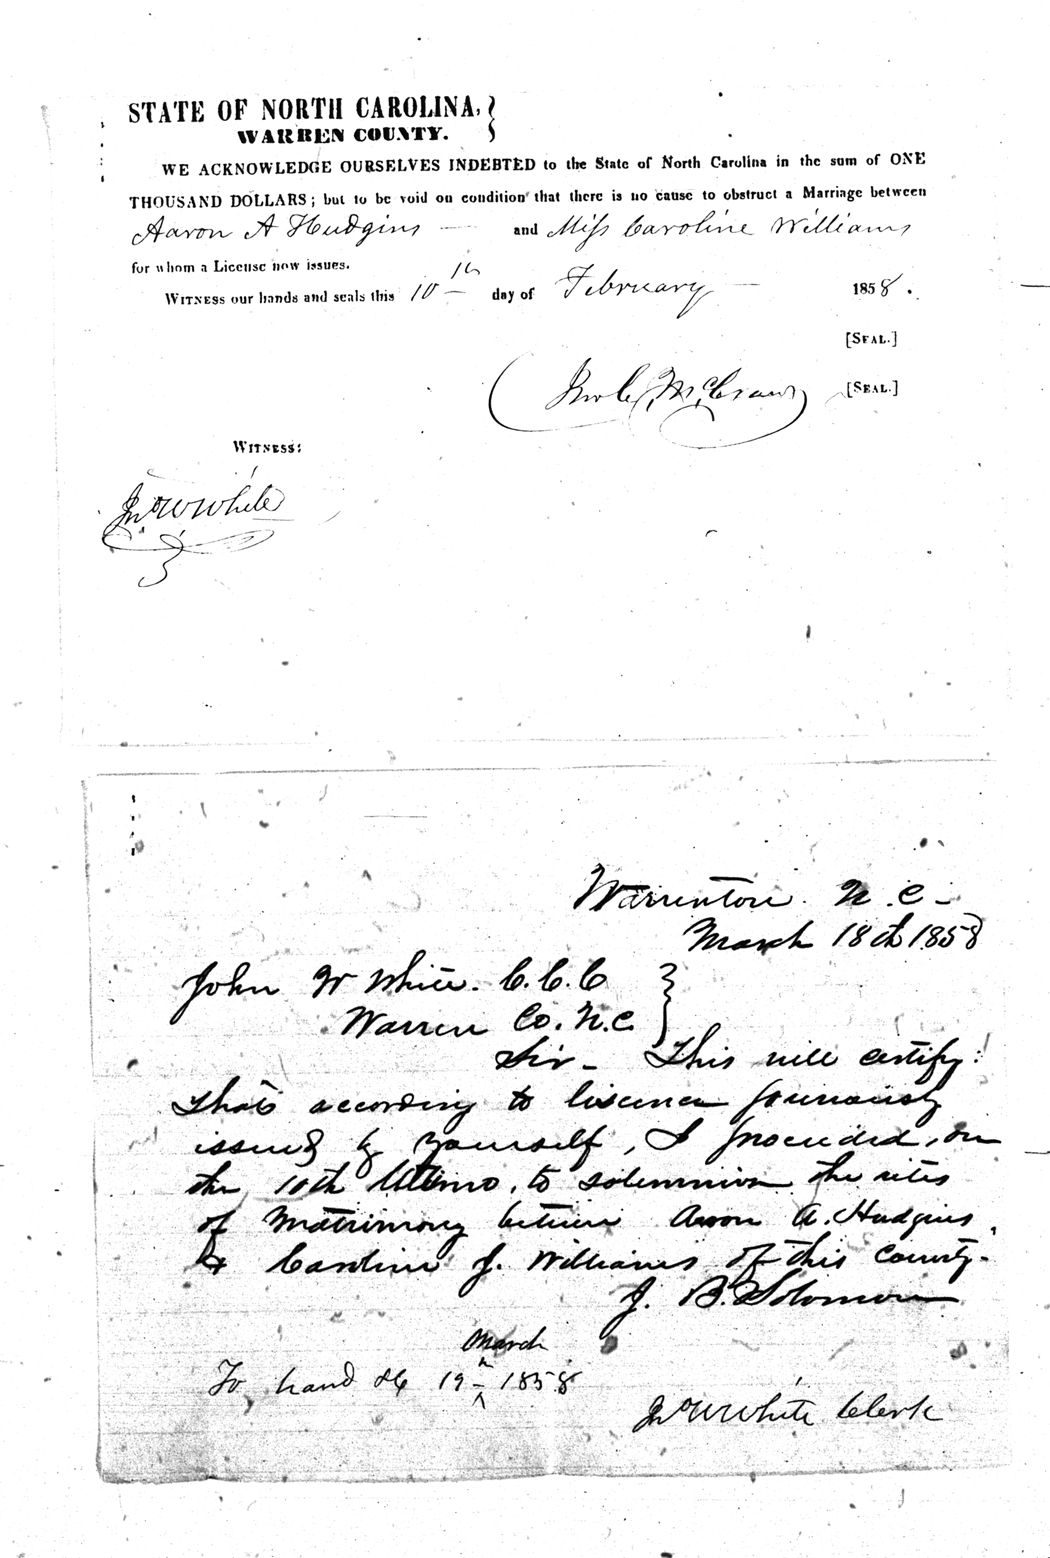 STATE OF NORTH CAROLINA,
WARREN COUNTY.
WE ACKNOWLEDGE OURSELVES INDEBTED to the State of North Carolina in the sum of ONE
THOUSAND DOLLARS; but to be void on condition that there is no cause to obstruct a Marriage between
Aaron A Hudgins and Miss Caroline Williams
for whom a License now issues.
WITNESS our hands and seals this 10th day of February 1858.
[SEAL.]
McCraw [SEAL.]
WITNESS:
Jno W White
Warrenton N.C-
March 18th 1858
John W White. C.C.C
Warren Co. N.C.
Sir- This will certify:
that according to liscence
issued by yourself, I proceeded, on
the 10th Ultimo, to solemnize the rites
of Matrimony between Aaron A. Hudgins,
& Caroline J. Williams of this County.
J. B. Solomon
March
To hand 19 1858
Jno W White Clerk